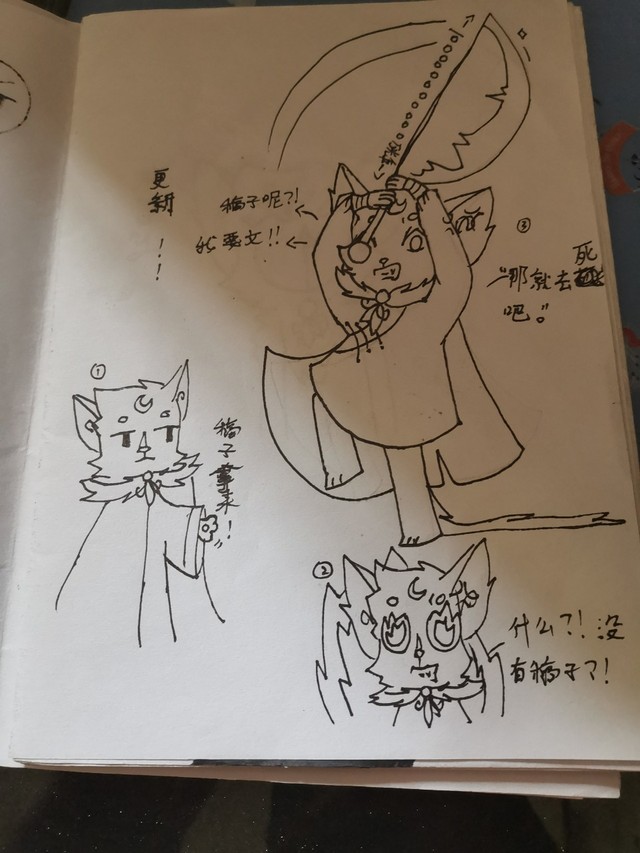 更新！！
①
稿子拿来！
②
什么?!没
有稿子?!
③
稿子呢?!
我要文!!
“那就去死
吧。”